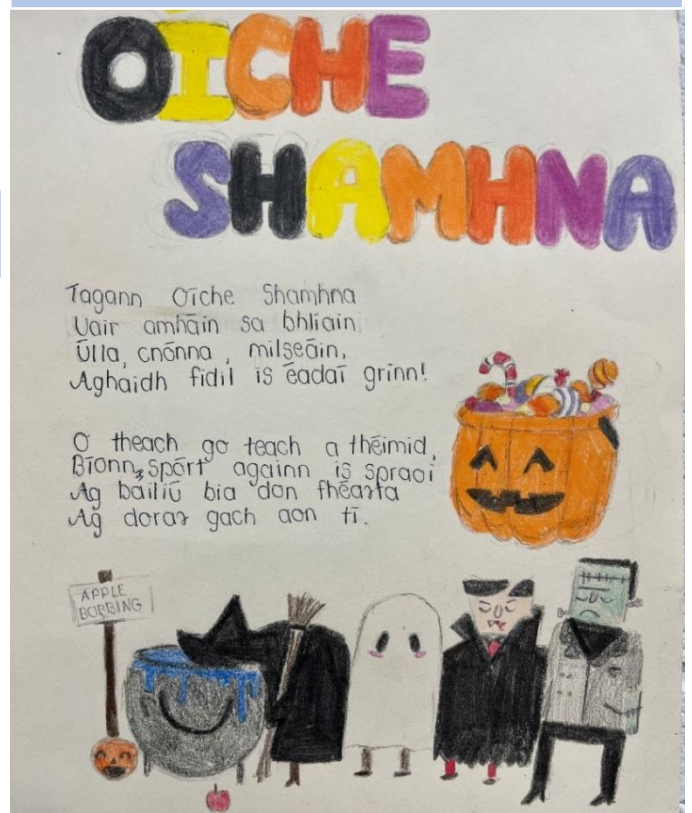 OÍCHE
SHAMHNA
Tagann Oíche Shamhna
Uair amháin sa bhliain
Úlla, cnónna, milseáin,
Aghaidh fidil is éadaí grinn!
Ó theach go teach a théimid,
Bíonn spórt againn is spraoi
Ag bailiú bia don fhéasta
Ag doras gach aon tí.
APPLE
BOBBING